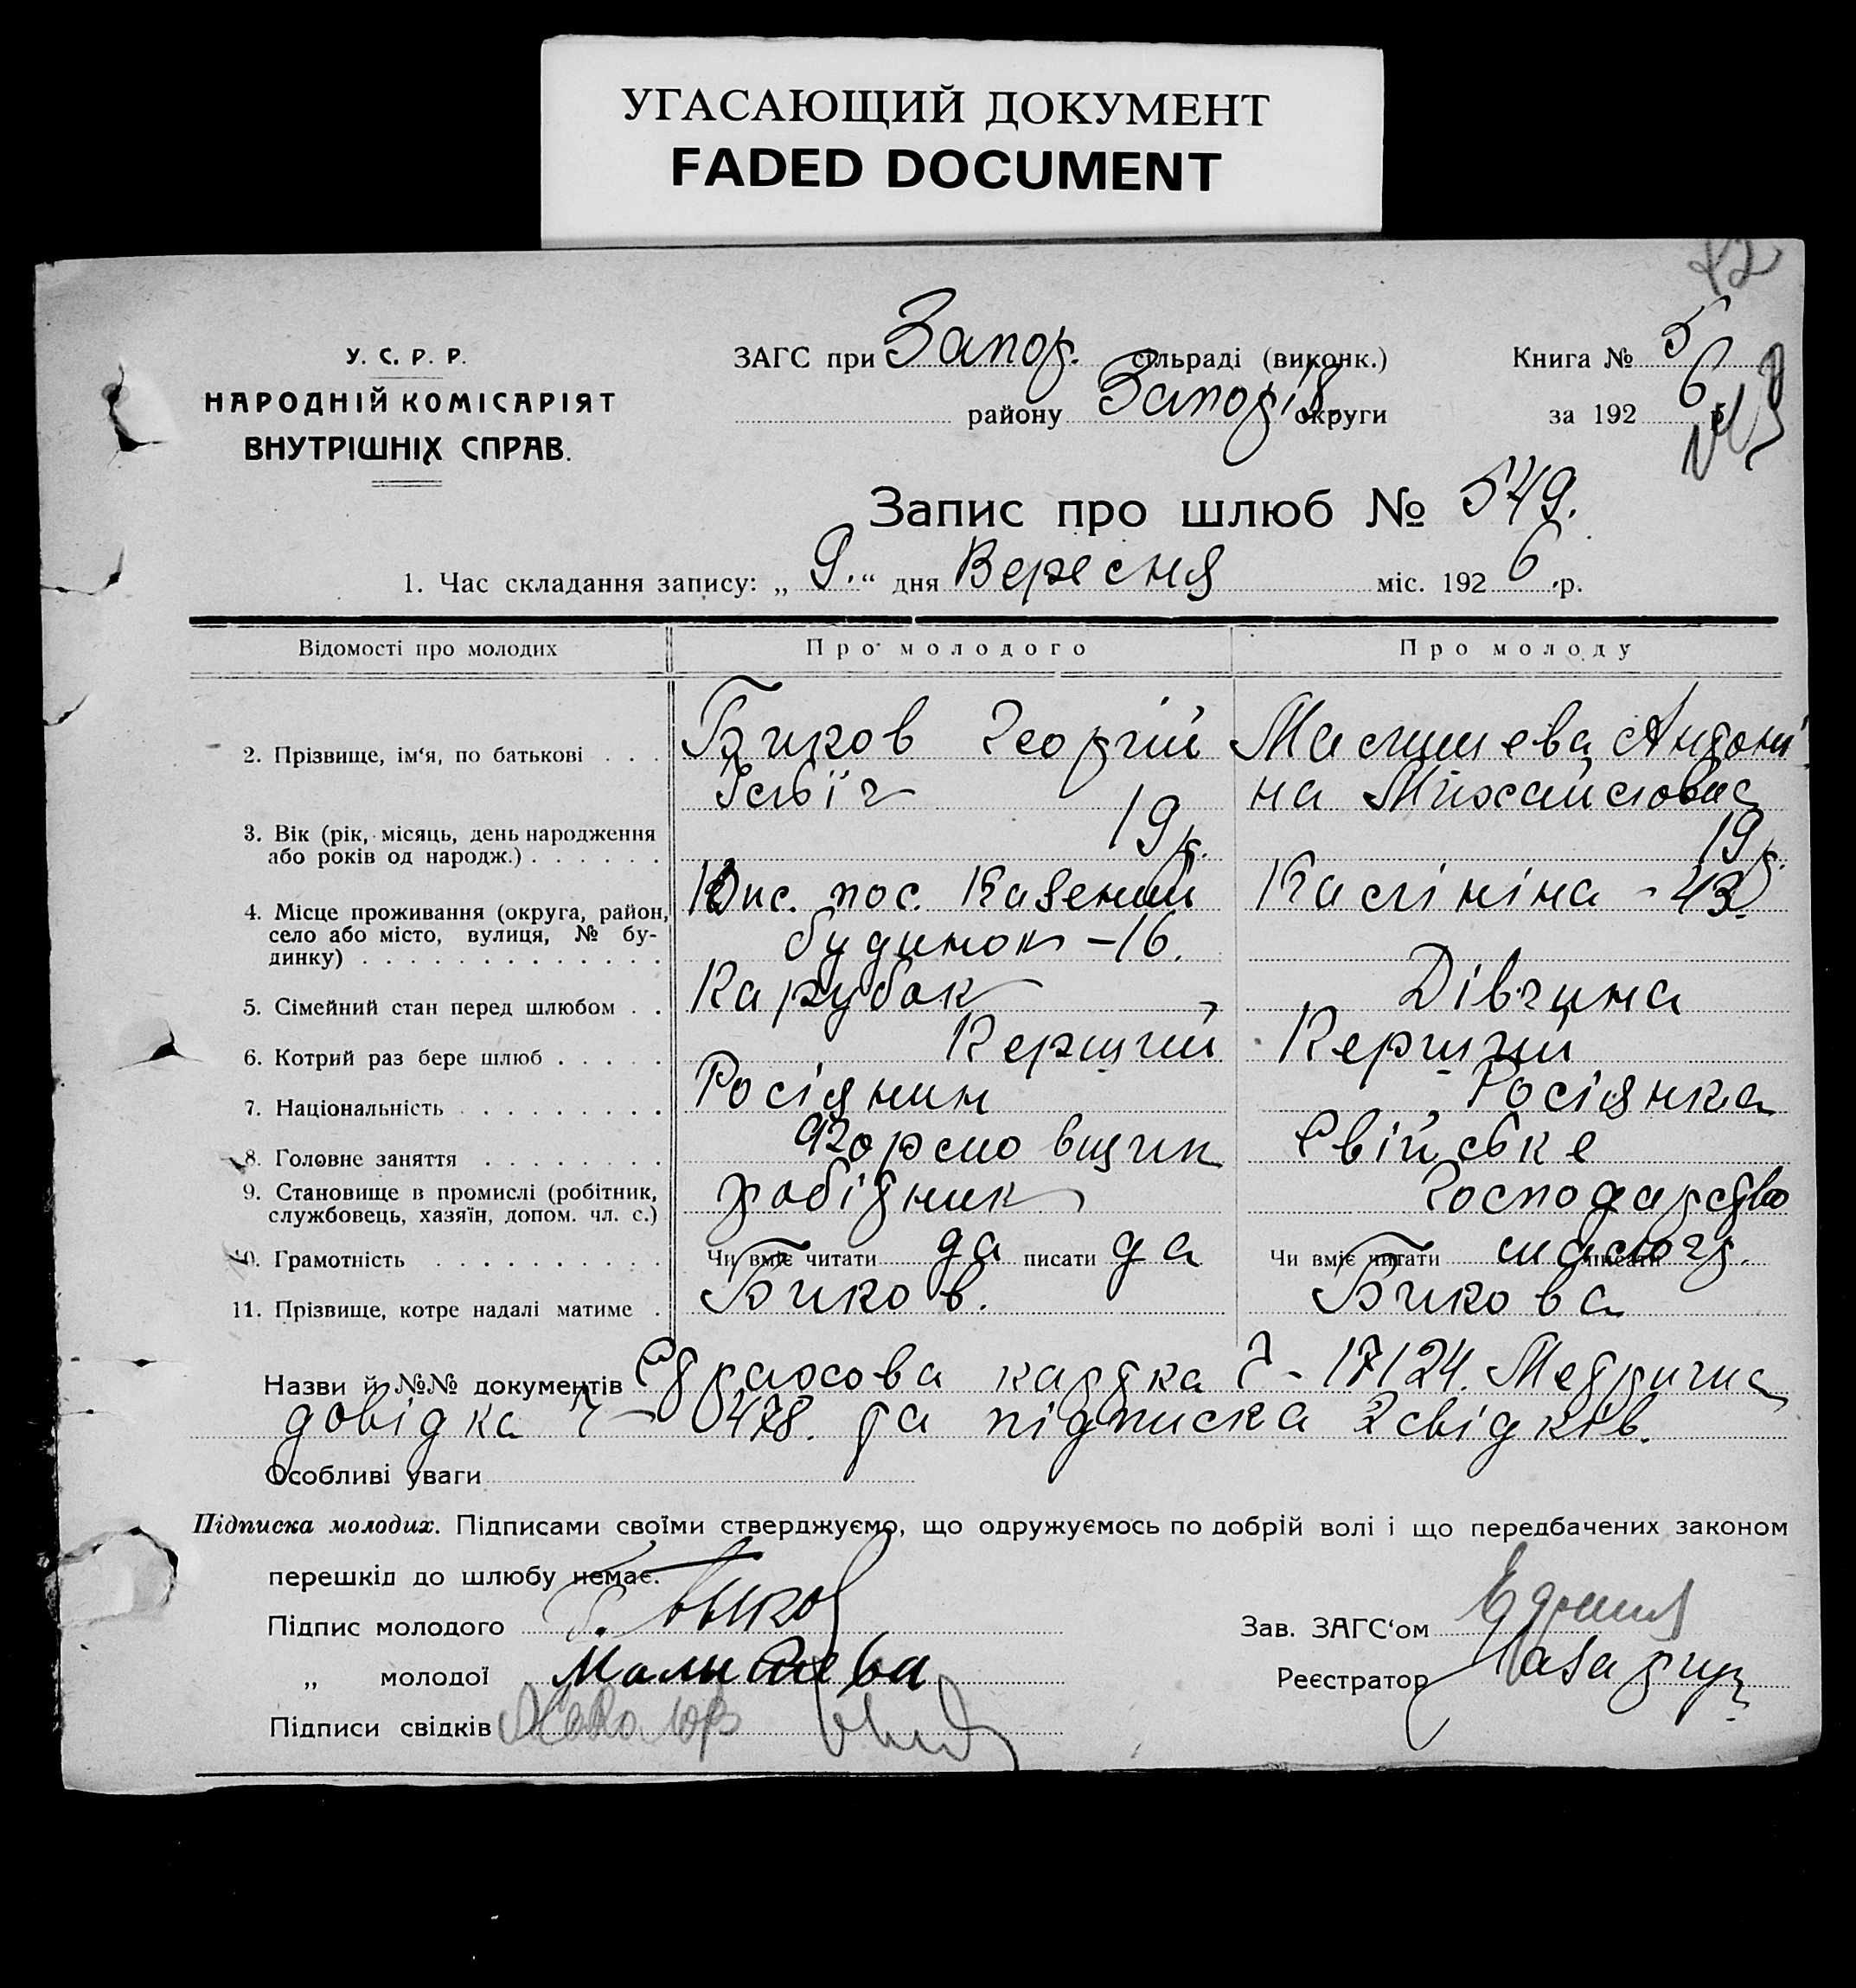 УГАСАЮЩИЙ ДОКУМЕНТ
FADED DOCUMENT
У. С. Р. Р.
НАРОДНІЙ КОМІСАРІЯТ
ВНУТРІШНІХ СПРАВ.
ЗАГС при Запор. сільраді (виконк.)
району Запоріз. округи
Книга № 5
за 1926 р.
Запис про шлюб № 549.
1. Час складання запису: „ 9. “ дня Вересня міс. 1926 р.
Відомості про молодих Про молодого Про молоду
2. Прізвище, ім‘я, по батькові . . . Биков Георгій Маслишева Антоні
Ілʼїч на Михайловна
3. Вік (рік, місяць, день народження
або років од народж.) . . . . . . 19 р. 19 р.
4. Місце проживання (округа, район,
село або місто, вулиця, № бу-
динку) . . . . . . . . . . . . .
пос. Казений
будинок - 16.
Калініна - 43
5. Сімейний стан перед шлюбом . . Карубок Дівчина
6. Котрий раз бере шлюб . . . . . Перший Перший
7. Національність . . . . . . . . . Росіянин Росіянка
8. Головне заняття . . . . . . . . Формовщик Свійське
9. Становище в промислі (робітник,
службовець, хазяїн, допом. чл. с.) робітник господарство
10. Грамотність . . . . . . . . . . Чи вміє читати да писати да Чи вміє читати писати малогр.
11. Прізвище, котре надалі матиме . Биков. Бикова
Назви й №№ документів Страхова картка Ч - 17124. Метрична
довідка Ч - 0478. та підписка 2 свідків.
Особливі уваги
Підписка молодих. Підписами своїми стверджуємо, що одружуємось по добрій волі і що передбачених законом
перешкід до шлюбу немає.
Підпис молодого Г. Быков
„ молодої Малышева
Підписи свідків
Зав. ЗАГС‘ом
Реєстратор